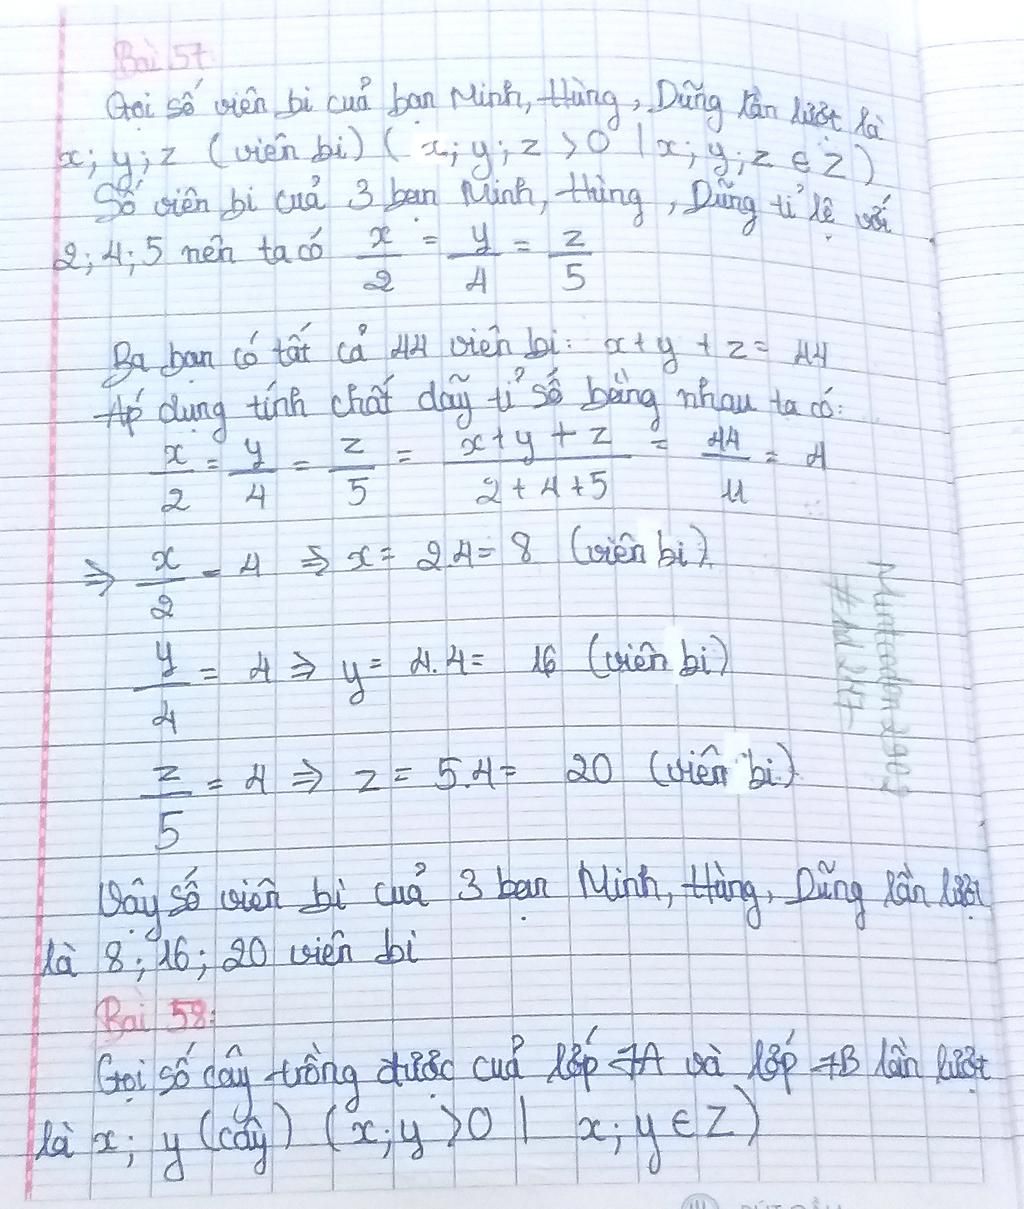 Bài 57
Gọi số viên bi cuả bạn Minh, Hùng, Dũng lần lượt là
x; y; z (viên bi) ( x; y; z > 0 | x; y; z ∈ Z )
Số viên bi cuả 3 bạn Minh, Hùng, Dũng tỉ lệ với
2; 4; 5 nên ta có x/2 = y/4 = z/5
Ba bạn có tất cả 44 viên bi: x + y + z = 44
Áp dụng tính chất dãy tỉ số bằng nhau ta có:
x/2 = y/4 = z/5 = (x + y + z)/(2 + 4 + 5) = 44/11 = 4
⇒ x/2 = 4 ⇒ x = 2.4 = 8 (viên bi)
y/4 = 4 ⇒ y = 4.4 = 16 (viên bi)
z/5 = 4 ⇒ z = 5.4 = 20 (viên bi)
Vậy số viên bi cuả 3 bạn Minh, Hùng, Dũng lần lượt
là 8; 16; 20 viên bi
Bài 58:
Gọi số cây trồng được cuả lớp 7A và lớp 7B lần lượt
là x; y (cây) (x; y > 0 | x; y ∈ Z)